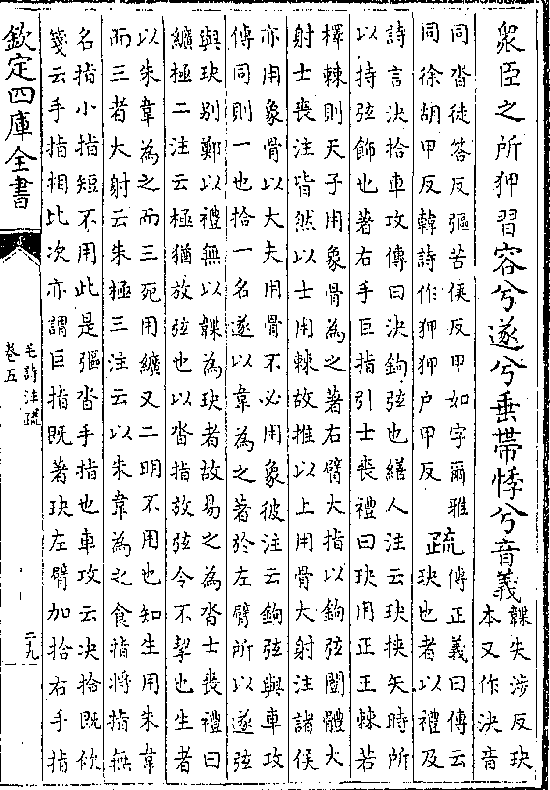 衆臣之所狎習容兮遂兮垂帶悸兮音義韘失涉反玦
本又作決音
同沓徒答反彄苦侯反甲如字爾雅
同徐胡甲反韓詩作狎狎戶甲反
疏傳正義曰傳云
玦也者以禮及
詩言決拾車攻傳曰決鉤弦也繕人注云玦挾矢時所
以持弦飾也著右手巨指引士喪禮曰玦用正王棘若
檡棘則天子用象骨為之著右臂大指以鉤弦闓體大
射士喪注皆然以士用棘故推以上用骨大射注諸侯
亦用象骨以大夫用骨不必用象彼注云鉤弦與車攻
傳同則一也拾一名遂以韋為之著於左臂所以遂弦
與玦别鄭以禮無以韘為玦者故易之為沓士喪禮曰
纊極二注云極猶放弦也以沓指放弦令不挈也生者
以朱韋為之而三死用纊又二明不用也知生用朱韋
而三者大射云朱極三注云以朱韋為之食指將指無
名指小指短不用此是彄沓手指也車攻云決拾既佽
箋云手指相比次亦謂巨指既著玦左臂加拾右手指
欽定四庫全書
毛詩注疏
卷五
二九